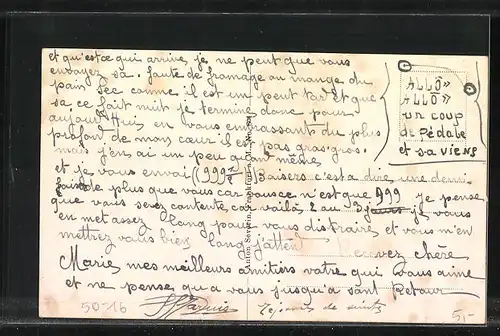 et qu'est ce qui arrive je ne peut que vous
envoyez sa. faute de fromage au mange du
pain sec comme il est un peut tard Et que
sa ce fait nuit je termine donc pour
aujourd'huis en vous embrassant du plus
profond de mon cœur il est pas gros gros
mais j'en ai un peu quand même
et je vous envoi (999 1/2) Baisers c'est a dire une demi
de plus que vous car vous n'est que 999 je pense
que vous serez contente car voilà 2 au 3 jours je vous
en metassez long pour vous distraire et vous m'en
mettrez vous bien long j'attend
chère
Marie mes meilleurs amitiers votre qui vous aime
et ne pense qu'a vous jusqu'a sont Retour
ALLÔ"
ALLÔ"
un coup
de Pédale
et sa viens
50-16
5,-